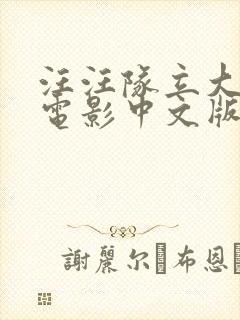 汪汪隊立大
電影中文版
謝麗尔·布恩